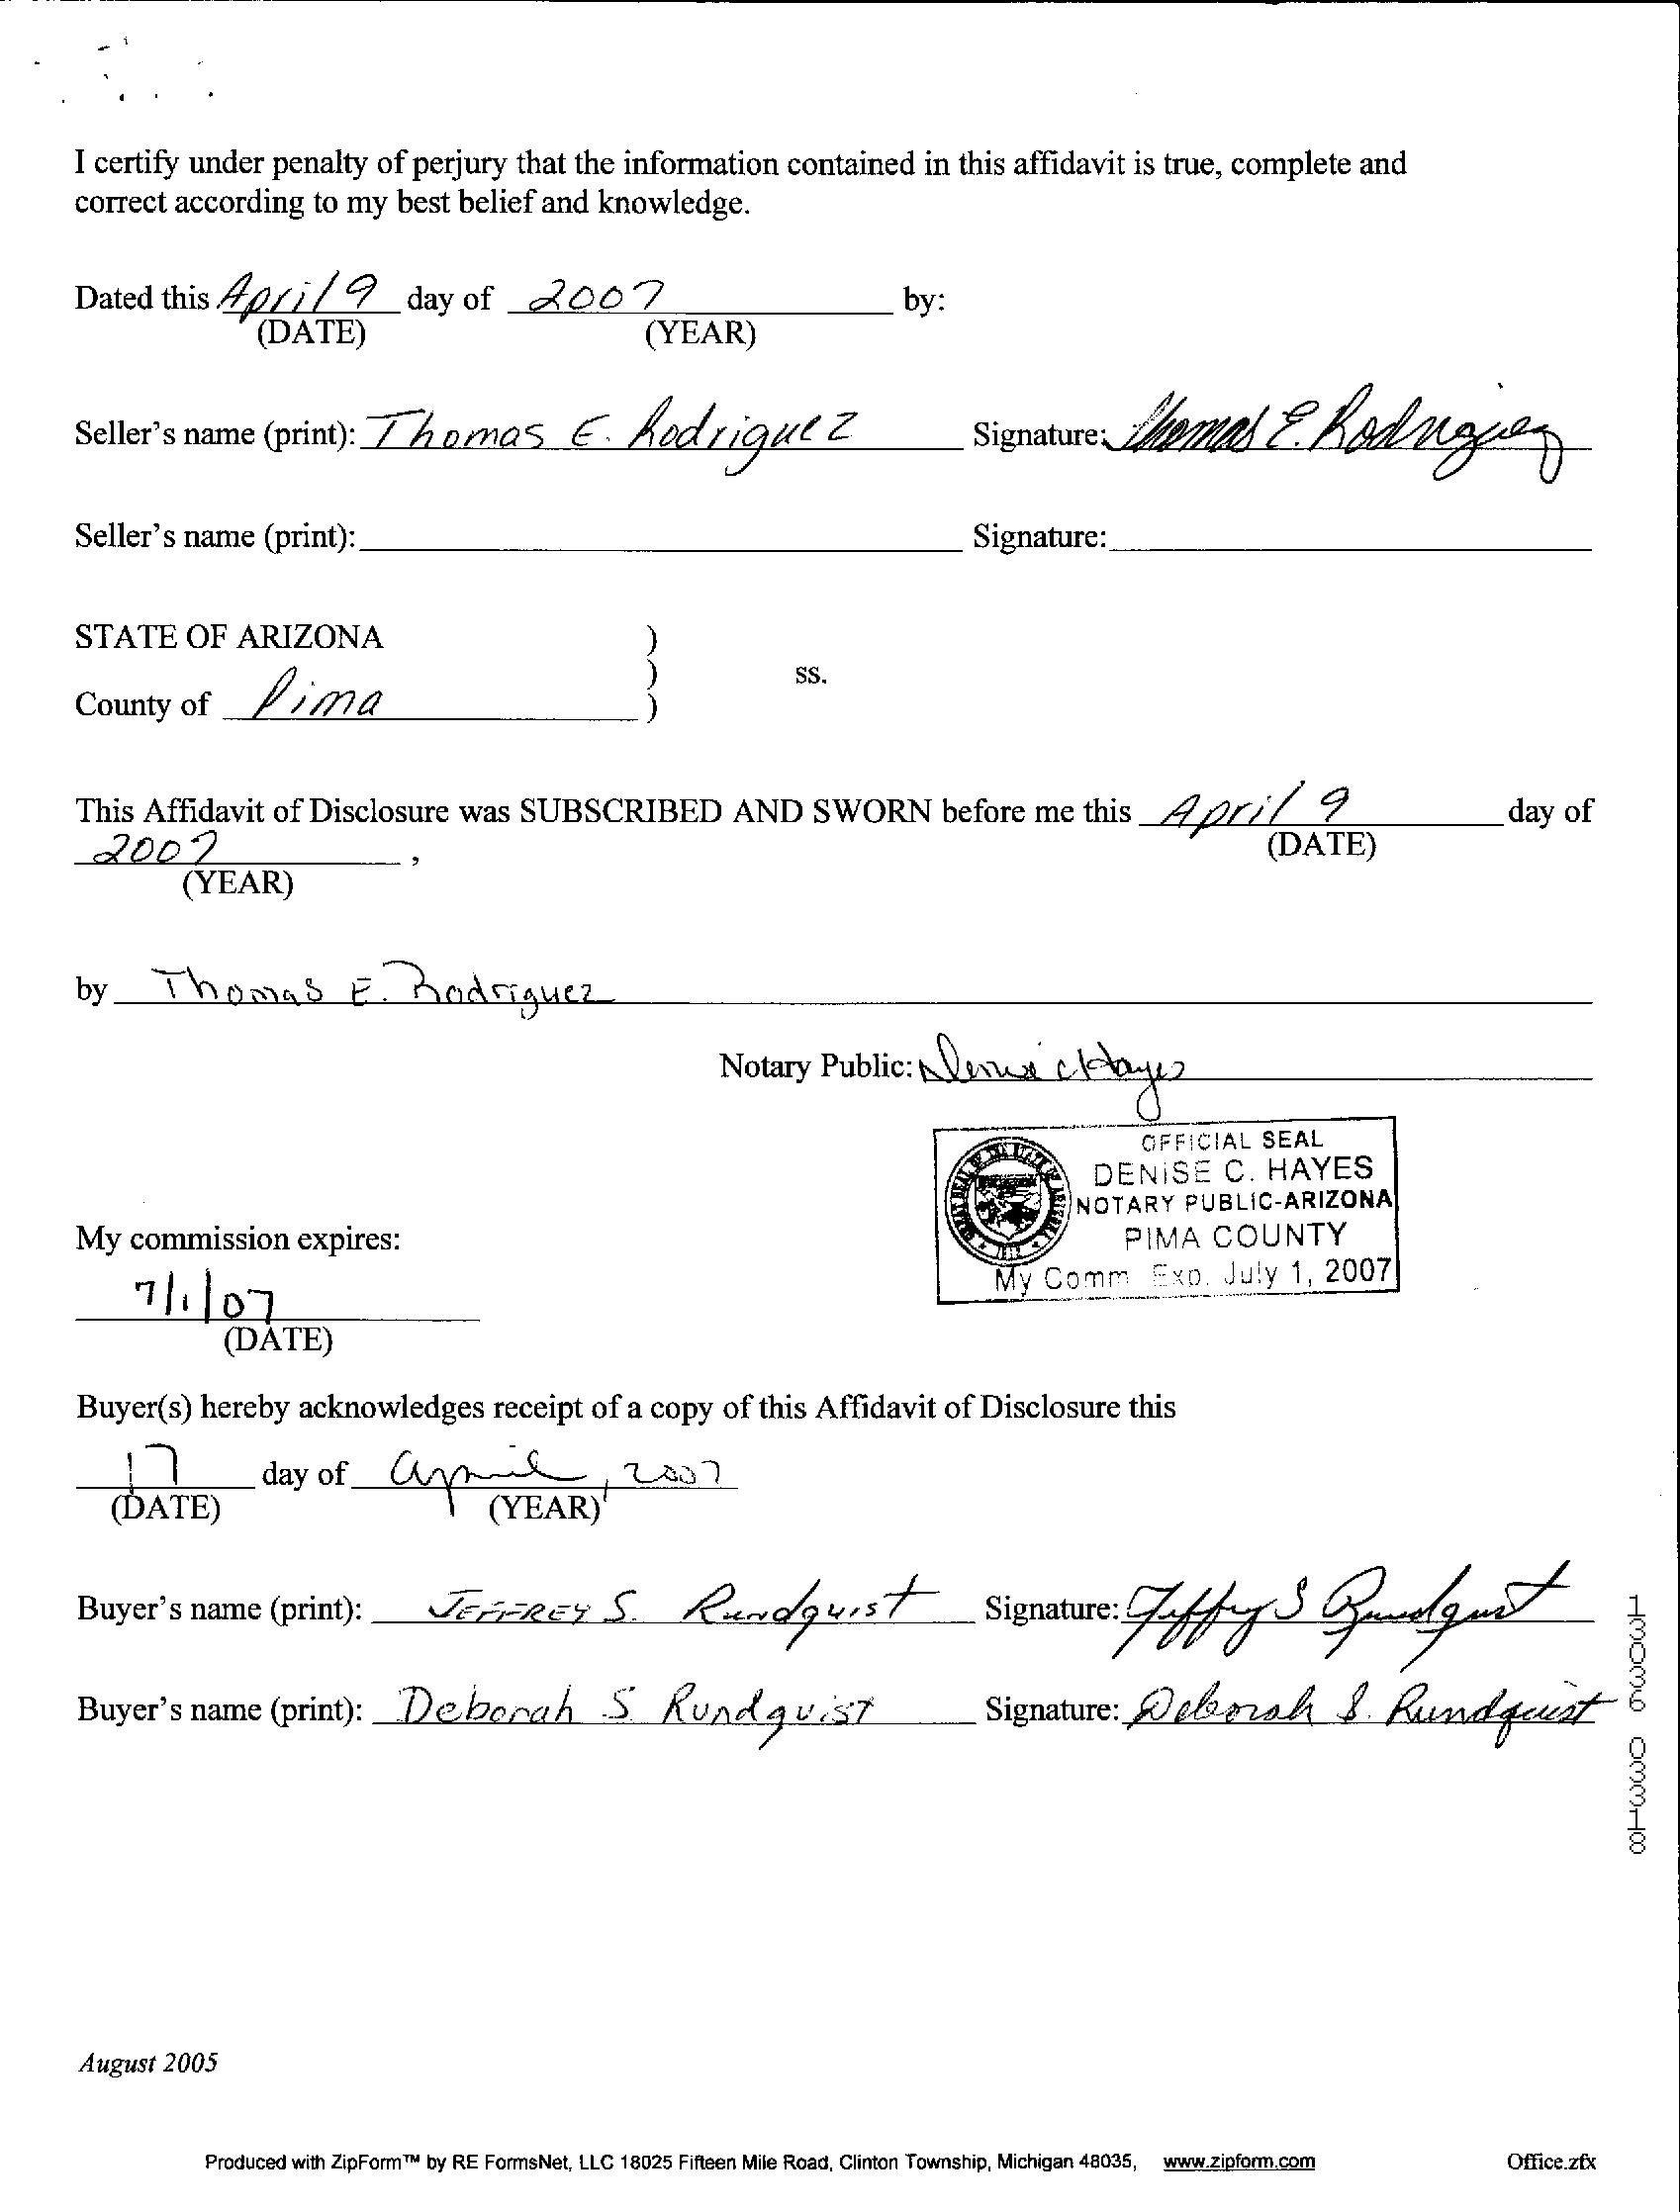 I certify under penalty of perjury that the information contained in this affidavit is true, complete and
correct according to my best belief and knowledge.
Dated this April 9 day of 2007 by:
(DATE) (YEAR)
Seller's name (print): Thomas E. Rodriguez Signature: Thomas E. Rodriguez
Seller's name (print): Signature:
STATE OF ARIZONA )
) ss.
County of Pima )
This Affidavit of Disclosure was SUBSCRIBED AND SWORN before me this April 9 day of
2007 , (DATE)
(YEAR)
by Thomas E. Rodriguez
Notary Public: Denise C Hayes
OFFICIAL SEAL
DENISE C. HAYES
NOTARY PUBLIC-ARIZONA
PIMA COUNTY
My Comm. Exp. July 1, 2007
My commission expires:
7/1/07
(DATE)
Buyer(s) hereby acknowledges receipt of a copy of this Affidavit of Disclosure this
17 day of April, 2007
(DATE) (YEAR)
Buyer's name (print): JEFFREY S. Rundquist Signature: Jeffrey S Rundquist
Buyer's name (print): Deborah S Rundquist Signature: Deborah S. Rundquist
13036 03318
August 2005
Produced with ZipForm™ by RE FormsNet, LLC 18025 Fifteen Mile Road, Clinton Township, Michigan 48035, www.zipform.com Office.zfx